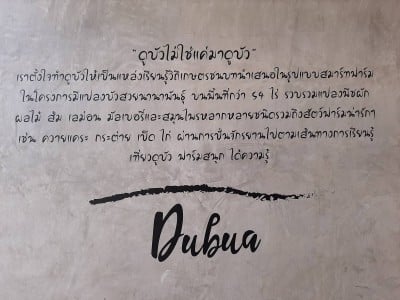 “ดูบัวไม่ใช่แค่มาดูบัว”
เราตั้งใจทำดูบัวให้เป็นแหล่งเรียนรู้วิถีเกษตรชนบทนำเสนอในรูปแบบสมาร์ทฟาร์ม
ในโครงการมีแปลงบัวสวยนานาพันธุ์ บนพื้นที่กว่า 54 ไร่ รวบรวมแปลงพืชผัก
ผลไม้ ส้ม เลม่อน มัลเบอรี่และสมุนไพรหลากหลายชนิดรวมถึงสัตว์ฟาร์มน่ารักๆ
เช่น ควายแคระ กระต่าย เป็ด ไก่ ผ่านการปั่นจักรยานไปตามเส้นทางการเรียนรู้
เที่ยวดูบัว ฟาร์มสนุก ได้ความรู้
Dubua